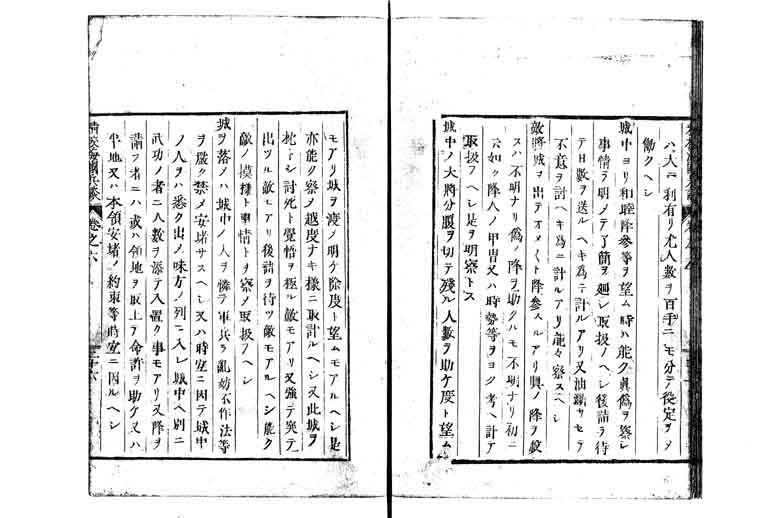 ハ大ニ利有リ尤人数ヲ百手ニモ分テ役定ヲメ
働クヘシ
城中ヨリ和睦降参等ヲ望ム時ハ能ク眞偽ヲ察シ
事情ヲ明メテ了簡ヲ廻シ取扱ノヘシ後詰ヲ待
テ日数ヲ送ルヘキ為ニ計ルアリ又油断サセテ
不意ヲ討ヘキ為ニ計ルアリ能々察スヘシ
敵将城ヲ出テオメ〱ト降参スルアリ眞ノ降ヲ殺
スハ不明ナリ偽ノ降ヲ助クルモ不明ナリ初ニ
云如ク降人ノ甲冑又ハ時勢等ヲヨク考ヘ計ア
取扱フヘシ是ヲ明察トス
城中ノ大将分腹ヲ切テ残ル人数ヲ助ケ度ト望ム
モアリ城ヲ渡ノ明ケ除度ト望ムモアルヘシ是
亦能ク察ノ越度ナキ様ニ取計ルヘシ又此城ヲ
枕トシ討死ト覚悟ヲ極ル敵モアリ又強テ突テ
出ツル敵モアリ後詰ヲ待ツ敵モアルヘシ能ク
敵ノ模様ト事情トヲ察ノ取扱フヘシ
城ヲ落ノハ城中ノ人ヲ憐ヲ軍兵ヲ乱妨不作法等
ヲ厳ク禁メ安堵サスヘシ又ハ時宜ニ因テ城中
ノ人ヲハ悉ク出ノ味方ノ列ニ入レ城中ヘ別ニ
武功ノ者ニ人数ヲ添テ入置ク事モアリ又降ヲ
請フ者ニハ或ハ領地ヲ取上テ命許ヲ助ケ又ハ
半地又ハ本領安堵ノ約束等時宜ニ因ルヘシ
精校海國兵談 卷之六